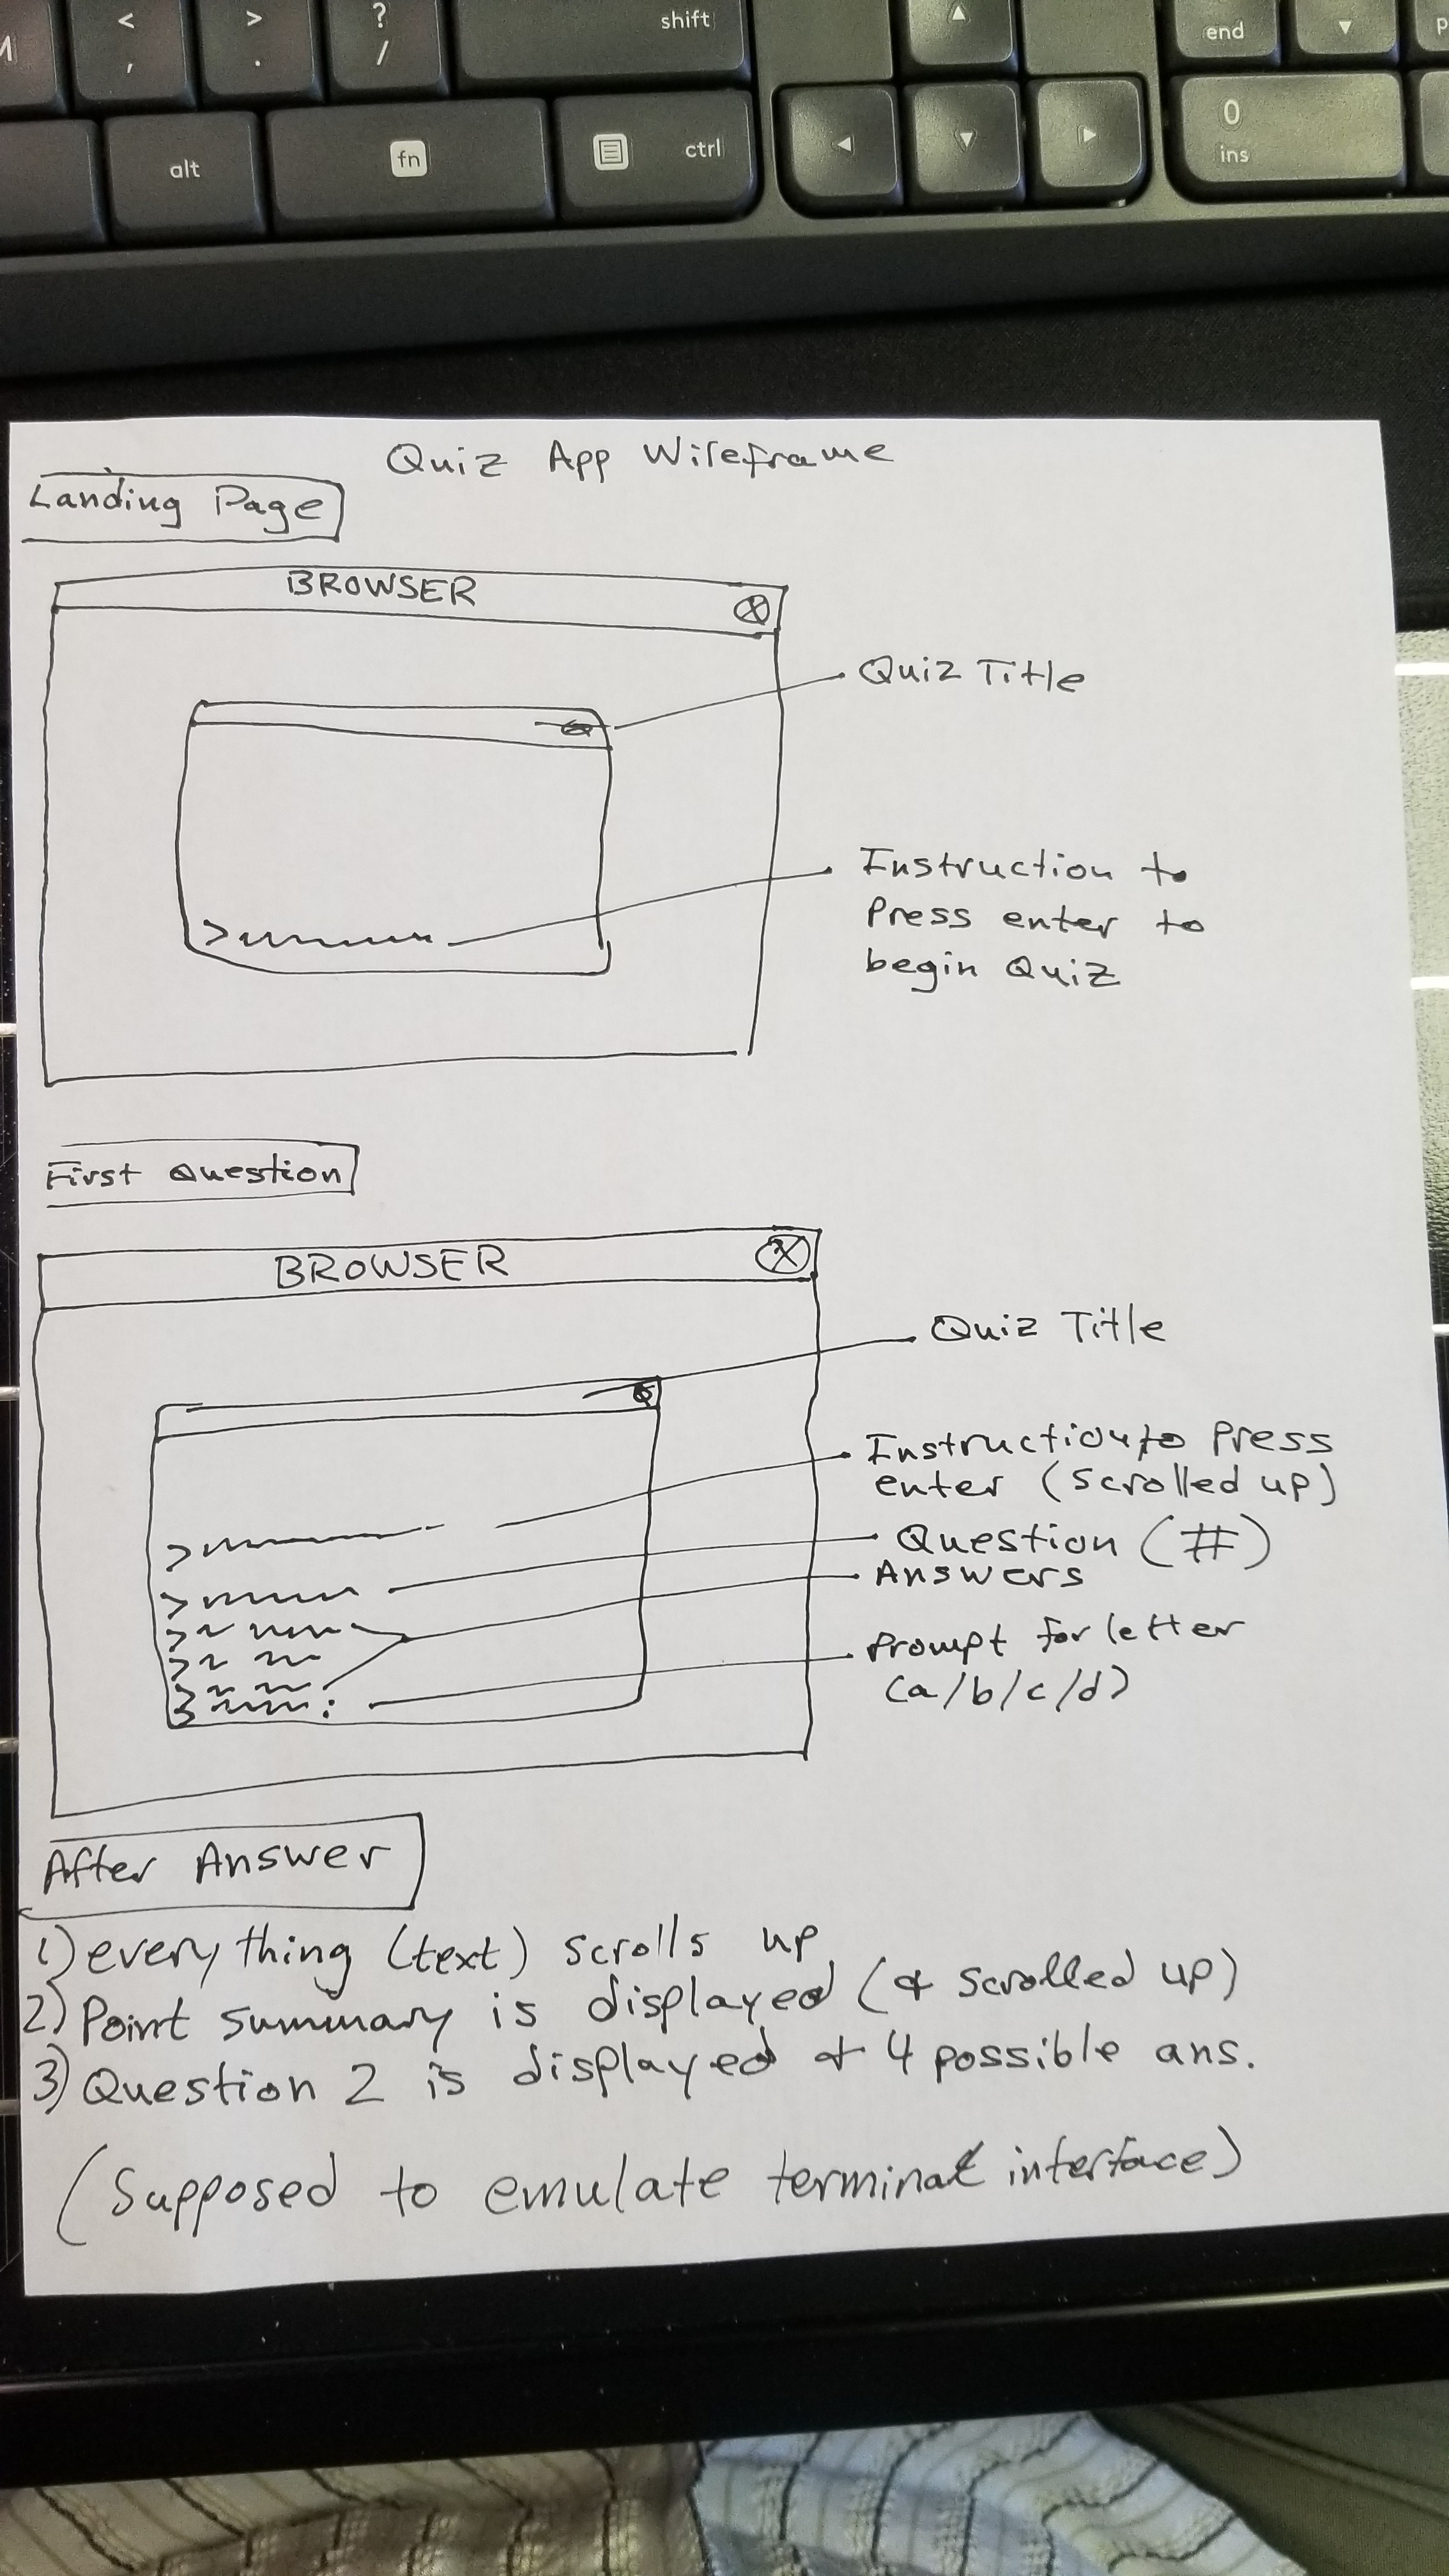 M
<
,
>
.
?
/
shift
end
alt
fn
ctrl
0
ins
Quiz App Wireframe
Landing Page
BROWSER
X
Quiz Title
Instruction to
Press enter to
begin Quiz
>
First Question
BROWSER
X
Quiz Title
Instruction to press
enter (scrolled up)
Question (#)
Answers
Prompt for letter
(a/b/c/d)
>
>
>
>
>
> :
After Answer
1) everything (text) scrolls up
2) Point summary is displayed (& scrolled up)
3) Question 2 is displayed + 4 possible ans.
(Supposed to emulate terminal interface)